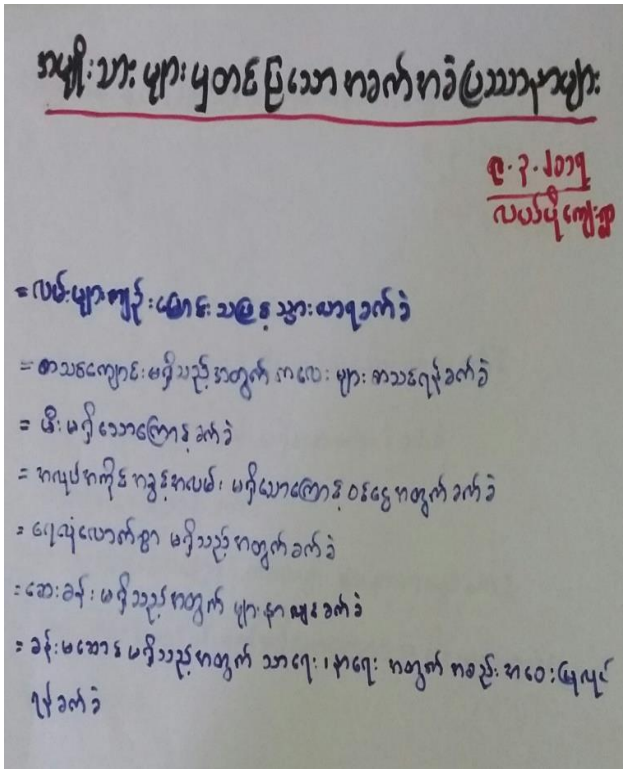 အမျိုးသားများမှတင်ပြသောအခက်အခဲပြဿနာများ
၉.၃.၂၀၁၇
လယ်ပိုကျေးရွာ
= လမ်းများကျဉ်းမြောင်းသဖြင့်သွားလာရခက်ခဲ
= စာသင်ကျောင်းမရှိသည့်အတွက် ကလေးများ စာသင်ရန်ခက်ခဲ
= မီးမရှိသောကြောင့်ခက်ခဲ
= အလုပ်အကိုင်အခွင့်အလမ်း မရှိသောကြောင့် ဝင်ငွေအတွက်ခက်ခဲ
= ရေလုံလောက်စွာ မရှိသည့်အတွက်ခက်ခဲ
= ဆေးခန်းမရှိသည့်အတွက် ဖျားနာလျှင်ခက်ခဲ
= ခန်းမဆောင်မရှိသည့်အတွက် သာရေး၊နာရေး အတွက် အစည်းအဝေးပြုလုပ်
ရန်ခက်ခဲ